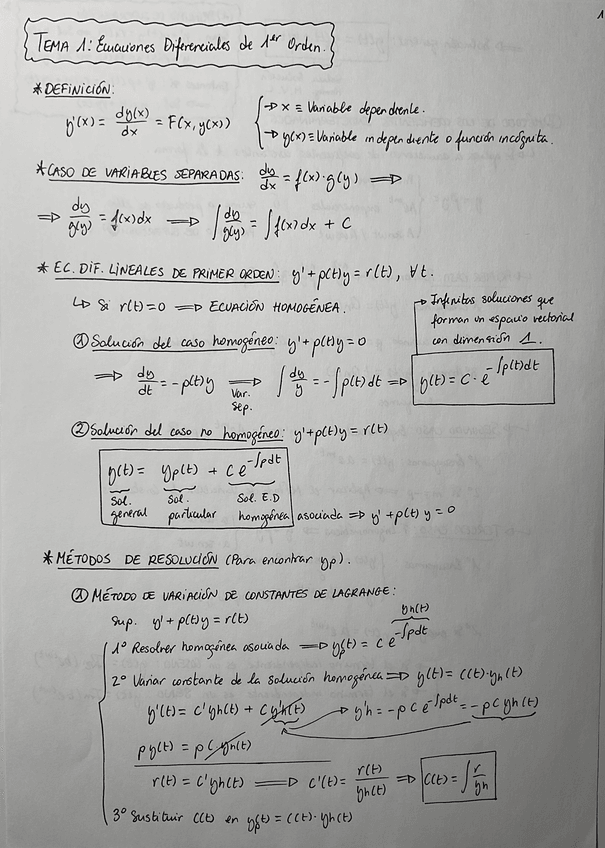 1
TEMA 1: Ecuaciones Diferenciales de 1er Orden.
* DEFINICIÓN:
y'(x) = dy(x)/dx = F(x, y(x))
→ x ≡ Variable dependiente.
→ y(x) ≡ Variable independiente o función incógnita.
* CASO DE VARIABLES SEPARADAS: dy/dx = f(x)·g(y) ⟹
⟹ dy/g(y) = f(x)dx ⟹ ∫ dy/g(y) = ∫ f(x)dx + C
* EC. DIF. LINEALES DE PRIMER ORDEN: y' + p(t)y = r(t), ∀t.
↳ Si r(t)=0 ⟹ ECUACIÓN HOMOGÉNEA.
→ Infinitas soluciones que
forman un espacio vectorial
con dimensión 1.
① Solución del caso homogéneo: y' + p(t)y = 0
⟹ dy/dt = -p(t)y ⟹ ∫ dy/y = -∫ p(t)dt ⟹ y(t) = C · e^{-∫p(t)dt}
Var.
Sep.
② Solución del caso no homogéneo: y' + p(t)y = r(t)
y(t) = yp(t) + C e^{-∫pdt}
Sol. Sol. Sol. E.D
general particular homogénea asociada ⟹ y' + p(t)y = 0
* MÉTODOS DE RESOLUCIÓN (Para encontrar yp).
① MÉTODO DE VARIACIÓN DE CONSTANTES DE LAGRANGE:
Sup. y' + p(t)y = r(t)
yh(t)
1º Resolver homogénea asociada ⟹ y(t) = C e^{-∫pdt}
2º Variar constante de la solución homogénea ⟹ y(t) = C(t)·yh(t)
y'(t) = C'yh(t) + Cy'h(t) → y'h = -p C e^{-∫pdt} = -p C yh(t)
py(t) = p C yh(t)
r(t) = C'yh(t) ⟹ C'(t) = r(t)/yh(t) ⟹ C(t) = ∫ r/yh
3º Sustituir C(t) en yp(t) = C(t)·yh(t)